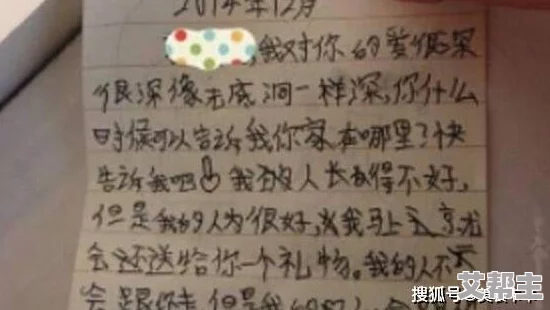 2014年12月
,我对你的爱很深
很深像无底洞一样深,你什么
时候可以告诉我你家在哪里了快
告诉我吧 我的人长得不好,
但是我的人为很好,我马上
会还送给你一个礼物。我的人不
会跟你走 但是我的
艾帮主
搜狐号@美食